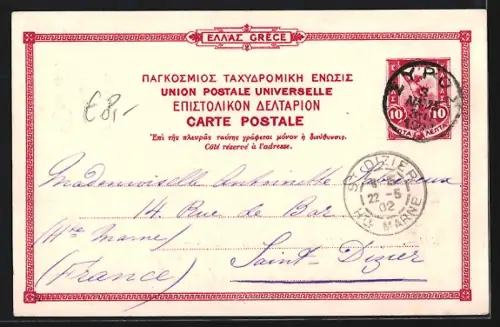 ΕΛΛΑΣ GRÈCE
ΠΑΓΚΟΣΜΙΟΣ ΤΑΧΥΔΡΟΜΙΚΗ ΕΝΩΣΙΣ
UNION POSTALE UNIVERSELLE
ΕΠΙΣΤΟΛΙΚΟΝ ΔΕΛΤΑΡΙΟΝ
CARTE POSTALE
Ἐπὶ τῆς πλευρᾶς ταύτης γράφεται μόνον ἡ διεύθυνσις.
Côté réservé à l'adresse.
€8,-
10 10
ΛΕΠΤΑ
ST DIZIER
22 - 5
02
HTE MARNE
Mademoiselle Antoinette
14 Rue de Bar
(Hte Marne) Saint-Dizier
(France)